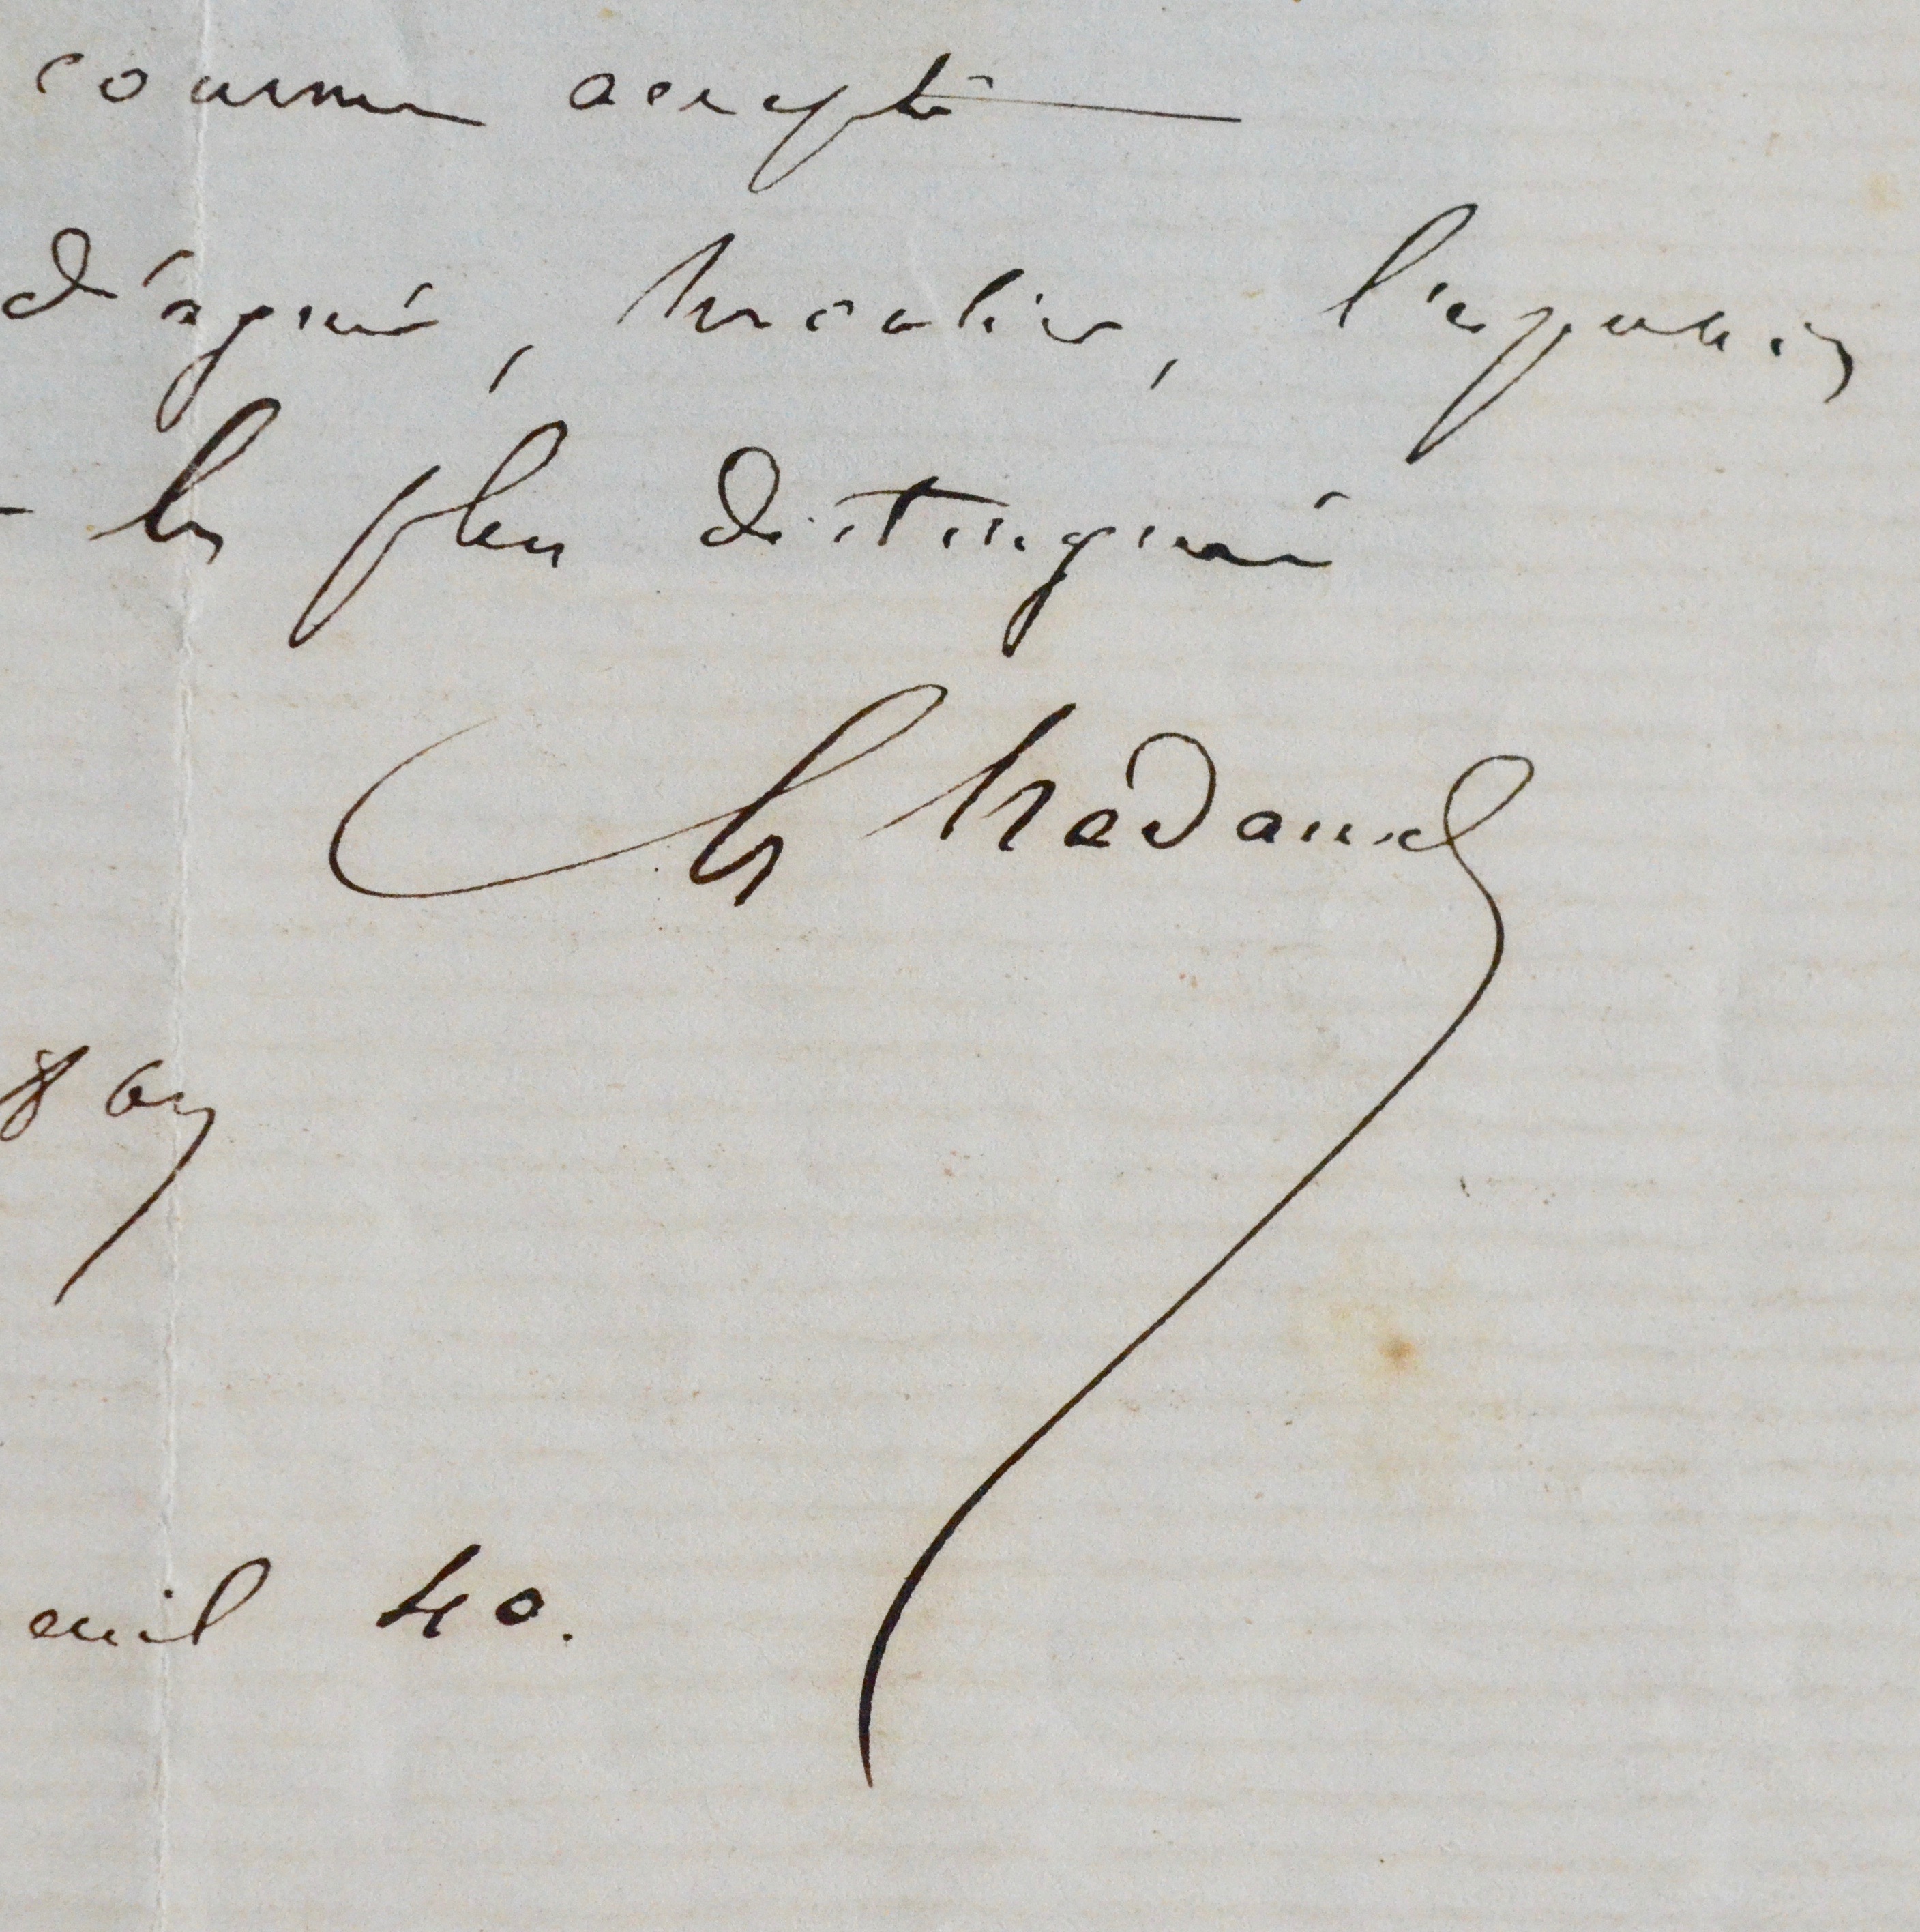 comme accepté
d'agréer, Monsieur, l'expression
les plus distingués
Ch Nadaud
40.